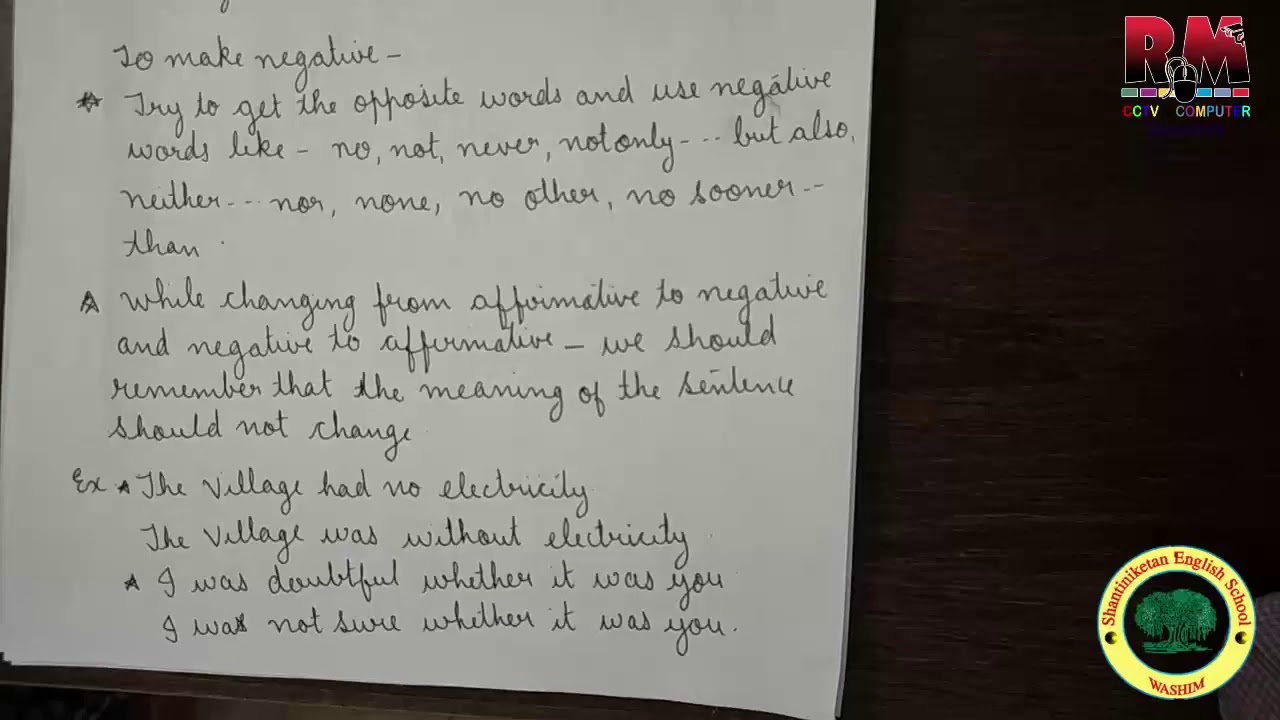 To make negative -
Try to get the opposite words and use negative
words like - no, not, never, not only - ... but also,
neither ... nor, none, no other, no sooner --
than
While changing from affirmative to negative
and negative to affirmative - we should
remember that the meaning of the sentence
should not change
Ex The Village had no electricity
The Village was without electricity
I was doubtful whether it was you
I was not sure whether it was you.
RM
CCTV COMPUTER
Shantiniketan English School
WASHIM